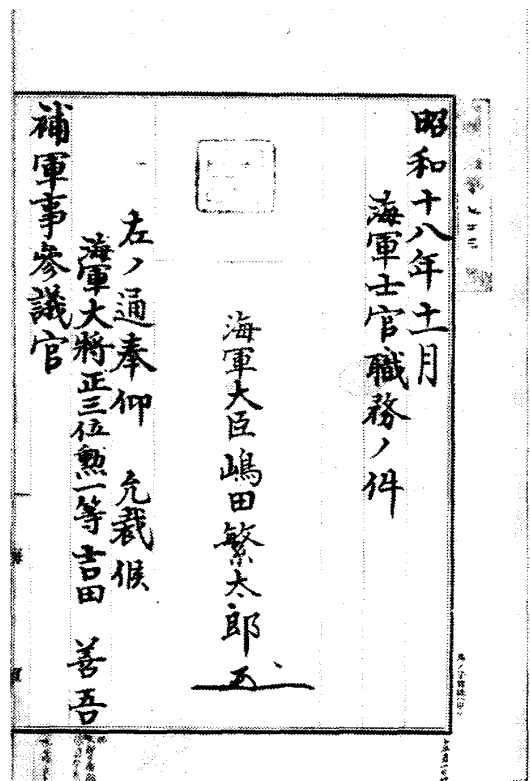 昭和十八年十一月
海軍士官職務ノ件
海軍大臣嶋田繁太郎
左ノ通奉仰 允裁候
海軍大將正三位勲一等吉田 善吾
補軍事参議官